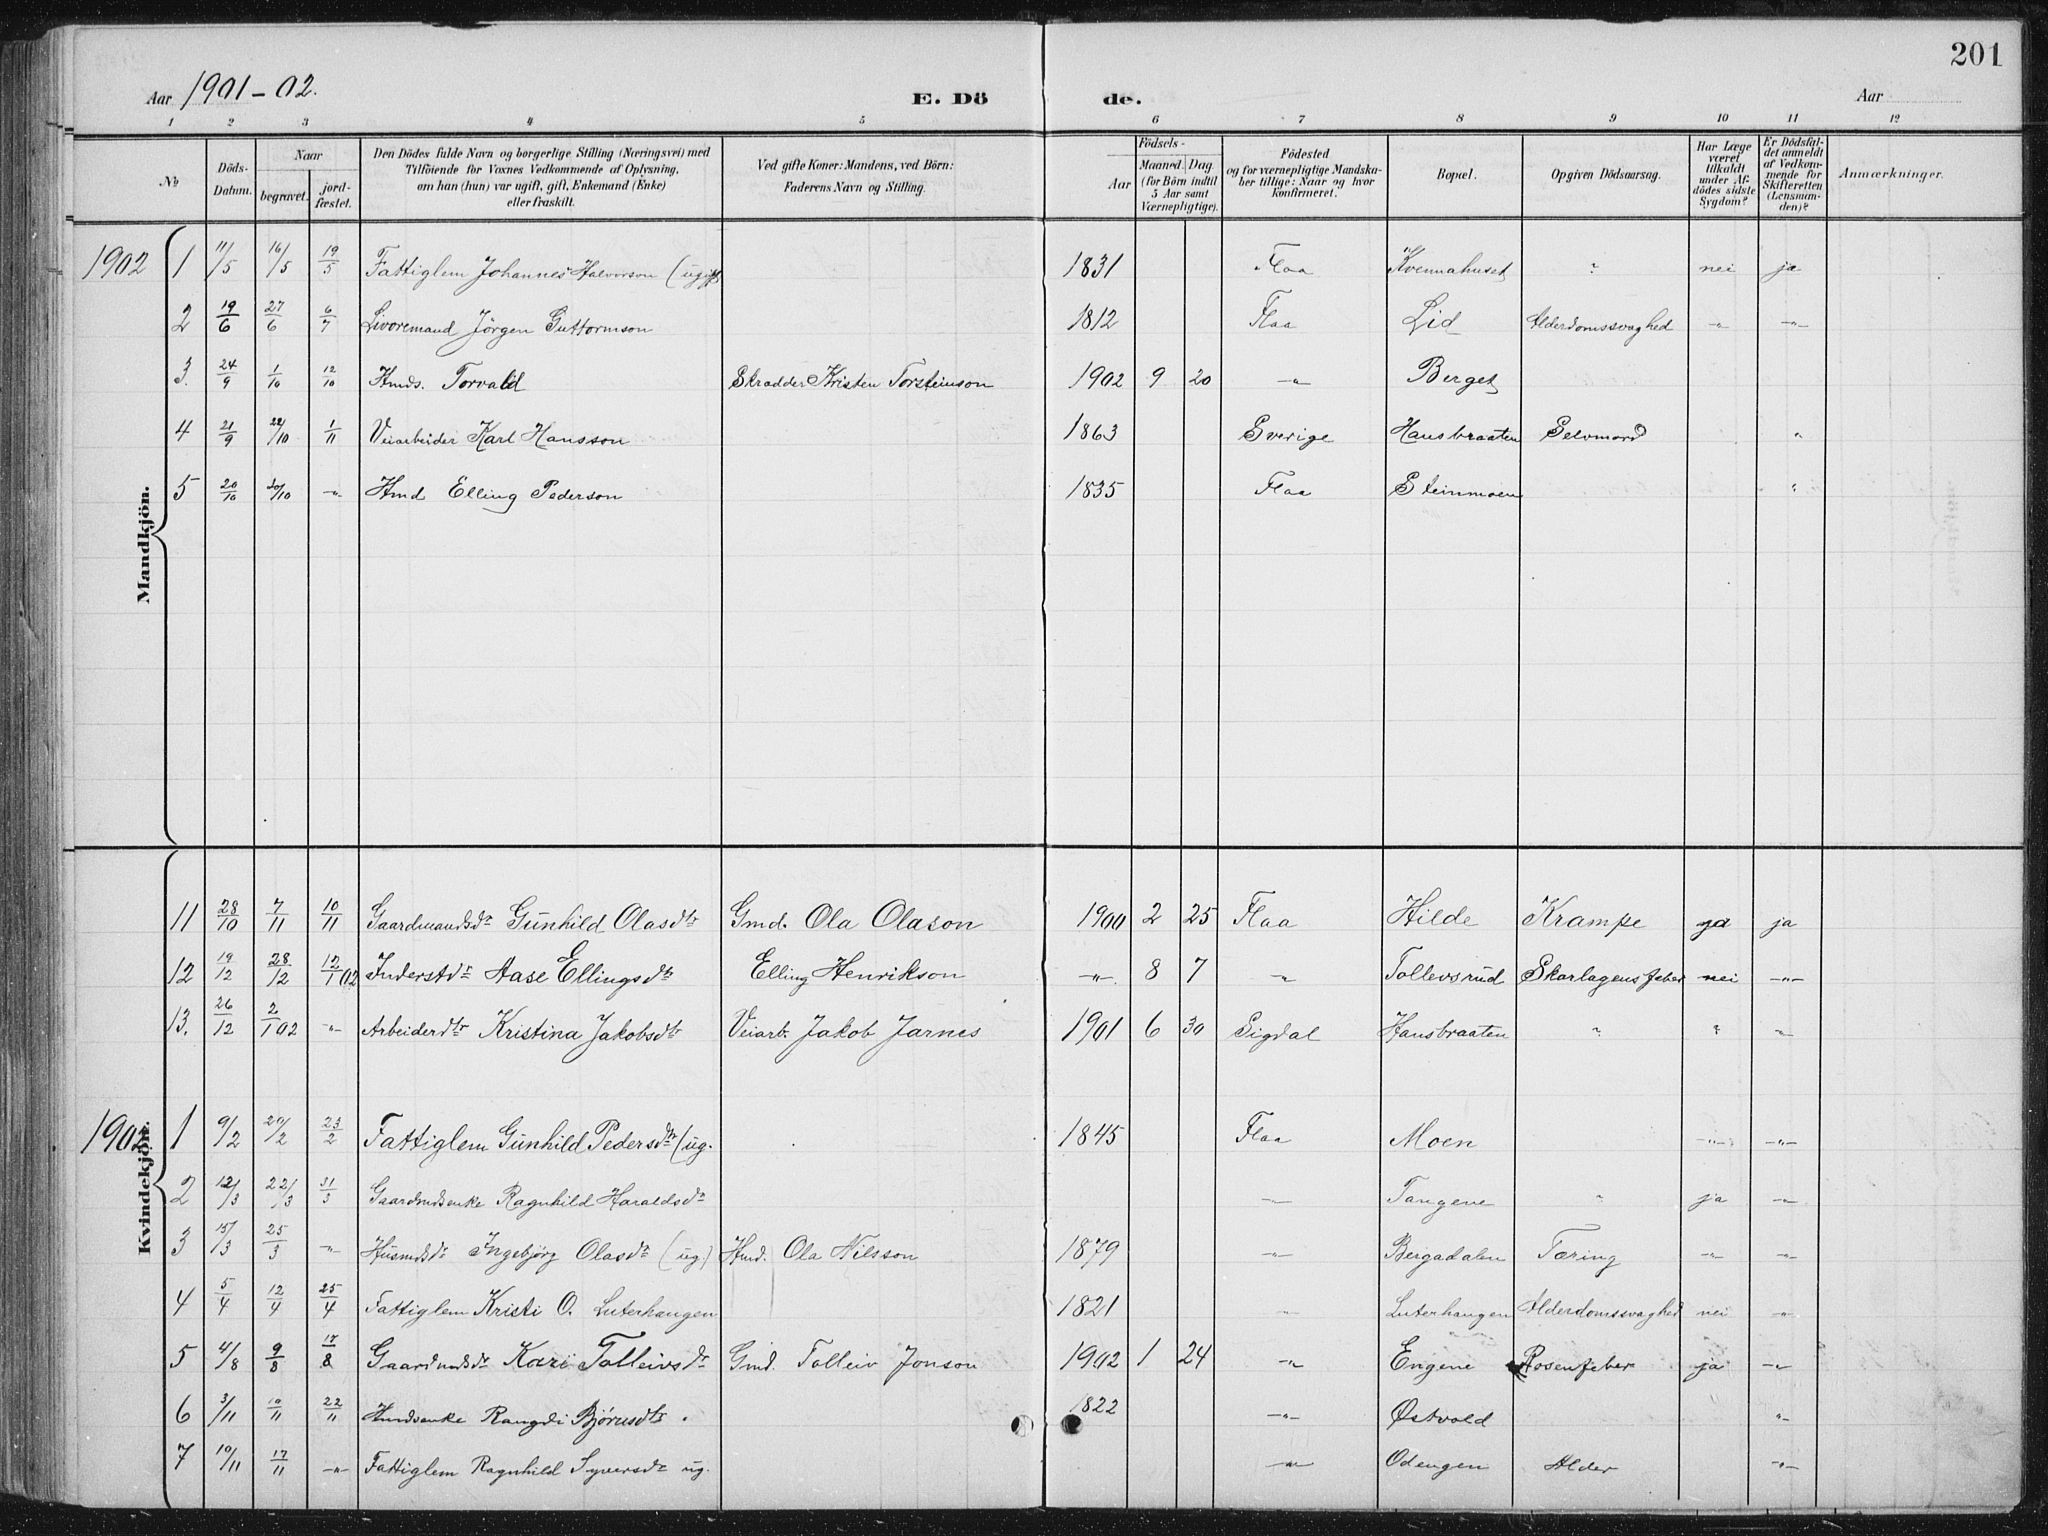 201
Aar 1901-02. E. Dö de. Aar
1 2 3 4 5 6 7 8 9 10 11 12
No
Döds-Datum.
Naar
begravet.
jord-fæstet.
Den Dödes fulde Navn og borgerlige Stilling (Næringsvei) med
Tilföiende for Voxnes Vedkommende af Oplysning,
om han (hun) var ugift, gift, Enkemand (Enke)
eller fraskilt.
Ved gifte Koner: Mandens, ved Börn:
Faderens Navn og Stilling.
Födsels-
Aar
Maaned. Dag
(for Börn indtil
5 Aar samt
Værnepligtige).
Födested
og for værnepligtige Mandska-
ber tillige: Naar og hvor
konfirmeret.
Bopæl.
Opgiven Dödsaarsag.
Har Læge
været
tilkaldt
under Af-
dödes sidste
Sygdom?
Er Dödsfal-
det anmeldt
af Vedkom-
mende for
Skifteretten
(Lensman-
den)?
Anmærkninger.
Mandkjön.
1902 1 11/5 16/5 19/5 Fattiglem Johannes Halvorson (ugift 1831 Flaa Kvennahuset " nei ja
2 19/6 27/6 6/7 Livoremand Jörgen Guttormson 1812 Flaa Lid Alderdomssvaghed -"- -"-
3. 24/9 1/10 12/10 Hmds. Torvald Skrædder Kristen Torsteinson 1902 9 20 -"- Berget
4 21/9 22/10 1/11 Veiarbeider Karl Hansson 1863 Sverige Hansbraaten Selvmord "
5 20/10 30/10 -"- Hmd Elling Pederson 1835 Flaa Steinmoen "
Kvindekjön.
11 28/10 7/11 10/11 Gaardmandsdr Gunhild Olasdtr Gmd. Ola Olason 1900 2 25 Flaa Hilde Krampe ja ja
12 19/12 28/12 12/1 02 Inderstdr Aase Ellingsdtr Elling Henrikson -"- 8 7 -"- Tollevsrud Skarlagensfeber nei -"-
13. 26/12 2/1 02 -"- Arbeiderdtr Kristina Jakobsdtr Veiarb. Jakob Jarnes 1901 6 30 Sigdal Hansbraaten " " -"-
1902 1 9/2 20/2 23/2 Fattiglem Gunhild Pedersdtr (ug. 1845 Flaa Moen -"- -"-
2 12/3 22/3 31/3 Gaardmdsenke Ragnhild Haraldsdr -"- Tangene " ja -"-
3 15/3 25/3 -"- Husmdsdr Ingebjörg Olasdtr (ug.) Hmd. Ola Nilsson 1879 -"- Bergadalen Tæring -"- -"-
4 5/4 12/4 25/4 Fattiglem Kristi O. Luterhaugen 1821 -"- Luterhaugen Alderdomssvaghed nei -"-
5 4/8 9/8 17/8 Gaardmdsdr Kari Tolleivsdr Gmd. Tolleiv Jonson 1902 1 24 -"- Engene Rosenfeber ja -"-
6 3/11 10/11 22/11 Hmdsenke Rangdi Bjørnsdtr. 1822 -"- Østvold -"-
7 10/11 17/11 -"- Fattiglem Ragnhild Syversdr ug. -"- Odengen Alder -"-